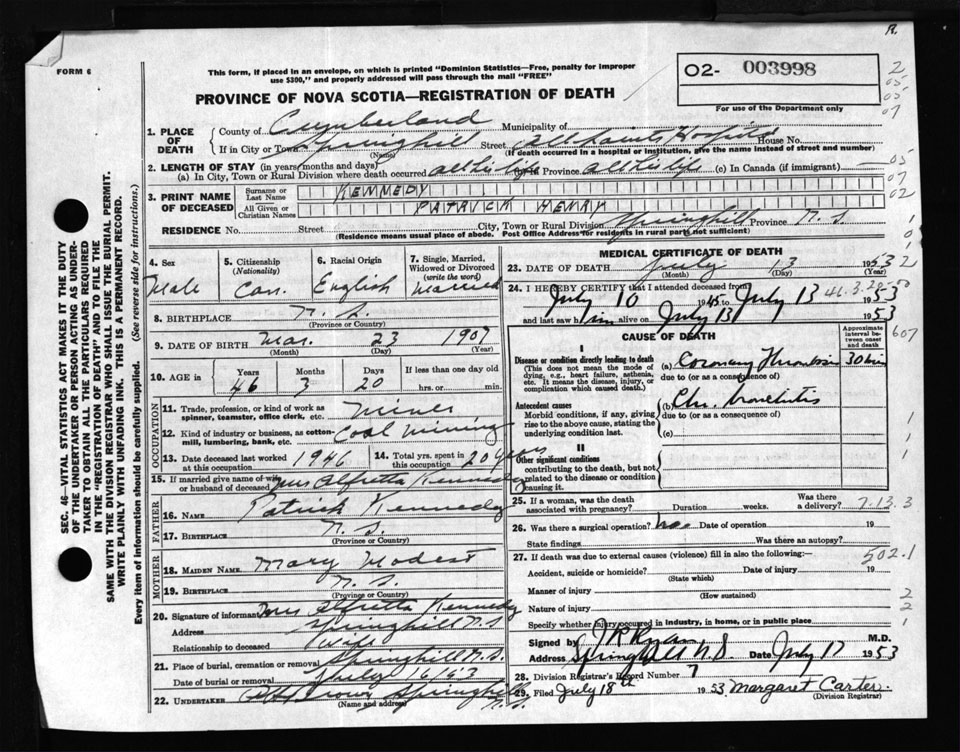 R.
FORM 6
This form, if placed in an envelope, on which is printed "Dominion Statistics—Free, penalty for improper
use $300," and properly addressed will pass through the mail "FREE"
02- 003998
For use of the Department only
PROVINCE OF NOVA SCOTIA—REGISTRATION OF DEATH
2
05
05
07
05
07
02
1. PLACE OF DEATH County of Cumberland Municipality of
If in City or Town Springhill (Name) Street All Saints Hospital House No.
(If death occurred in a hospital or institution, give the name instead of street and number)
2. LENGTH OF STAY (in years, months and days)
(a) In City, Town or Rural Division where death occurred all his life Province all his life (c) In Canada (if immigrant)
3. PRINT NAME OF DECEASED Surname or Last Name KENNEDY
All Given or Christian Names PATRICK HENRY
RESIDENCE No. Street City, Town or Rural Division Springhill Province N. S.
(Residence means usual place of abode. Post Office Address for residents in rural parts not sufficient)
4. Sex Male
5. Citizenship (Nationality) Can.
6. Racial Origin English
7. Single, Married, Widowed or Divorced (write the word) Married
8. BIRTHPLACE N. S.
(Province or Country)
9. DATE OF BIRTH Mar. 23 1907
(Month) (Day) (Year)
10. AGE in Years 46 Months 3 Days 20 If less than one day old hrs. or min.
OCCUPATION
11. Trade, profession, or kind of work as spinner, teamster, office clerk, etc. Miner
12. Kind of industry or business, as cotton-mill, lumbering, bank, etc. Coal Mining
13. Date deceased last worked at this occupation 1946
14. Total yrs. spent in this occupation 20 years
15. If married give name of wife or husband of deceased Mrs Alfretta Kennedy
FATHER
16. NAME Patrick Kennedy
17. BIRTHPLACE N. S.
(Province or Country)
MOTHER
18. MAIDEN NAME Mary Modest
19. BIRTHPLACE N. S.
(Province or Country)
20. Signature of informant Mrs Alfretta Kennedy
Address Springhill N.S
Relationship to deceased Wife
21. Place of burial, cremation or removal Springhill N.S.
Date of burial or removal July 16/53
22. UNDERTAKER Brown Springhill N.S.
(Name and address)
MEDICAL CERTIFICATE OF DEATH
23. DATE OF DEATH July 13 1953
(Month) (Day) (Year)
24. I HEREBY CERTIFY that I attended deceased from
July 10 1945 to July 13 1953
and last saw him alive on July 13 1953
CAUSE OF DEATH
Approximate interval between onset and death
607
I
Disease or condition directly leading to death
(This does not mean the mode of dying, e.g., heart failure, asthenia, etc. It means the disease, injury, or complication which caused death.)
(a) Coronary Thrombosis 30 min
due to (or as a consequence of)
Antecedent causes
Morbid conditions, if any, giving rise to the above cause, stating the underlying condition last.
(b) Chr. bronchitis
due to (or as a consequence of)
(c)
II
Other significant conditions
contributing to the death, but not related to the disease or condition causing it.
25. If a woman, was the death associated with pregnancy? Duration weeks. Was there a delivery?
7.13.3
26. Was there a surgical operation? no Date of operation 19
State findings Was there an autopsy?
27. If death was due to external causes (violence) fill in also the following:—
502.1
Accident, suicide or homicide? Date of injury 19
(State which)
Manner of injury
(How sustained)
Nature of injury
Specify whether injury occurred in industry, in home, or in public place
Signed by J R Ryan M.D.
Address Springhill N.S Date July 17 1953
28. Division Registrar's Record Number 7
29. Filed July 18th 1953 Margaret Carter
(Division Registrar)
SEC. 46—VITAL STATISTICS ACT MAKES IT THE DUTY
OF THE UNDERTAKER OR PERSON ACTING AS UNDER-
TAKER TO OBTAIN ALL THE PARTICULARS REQUIRED
IN THE "REGISTRATION OF DEATH" AND TO FILE THE
SAME WITH THE DIVISION REGISTRAR WHO SHALL ISSUE THE BURIAL PERMIT.
WRITE PLAINLY WITH UNFADING INK. THIS IS A PERMANENT RECORD.
Every item of information should be carefully supplied. (See reverse side for instructions.)